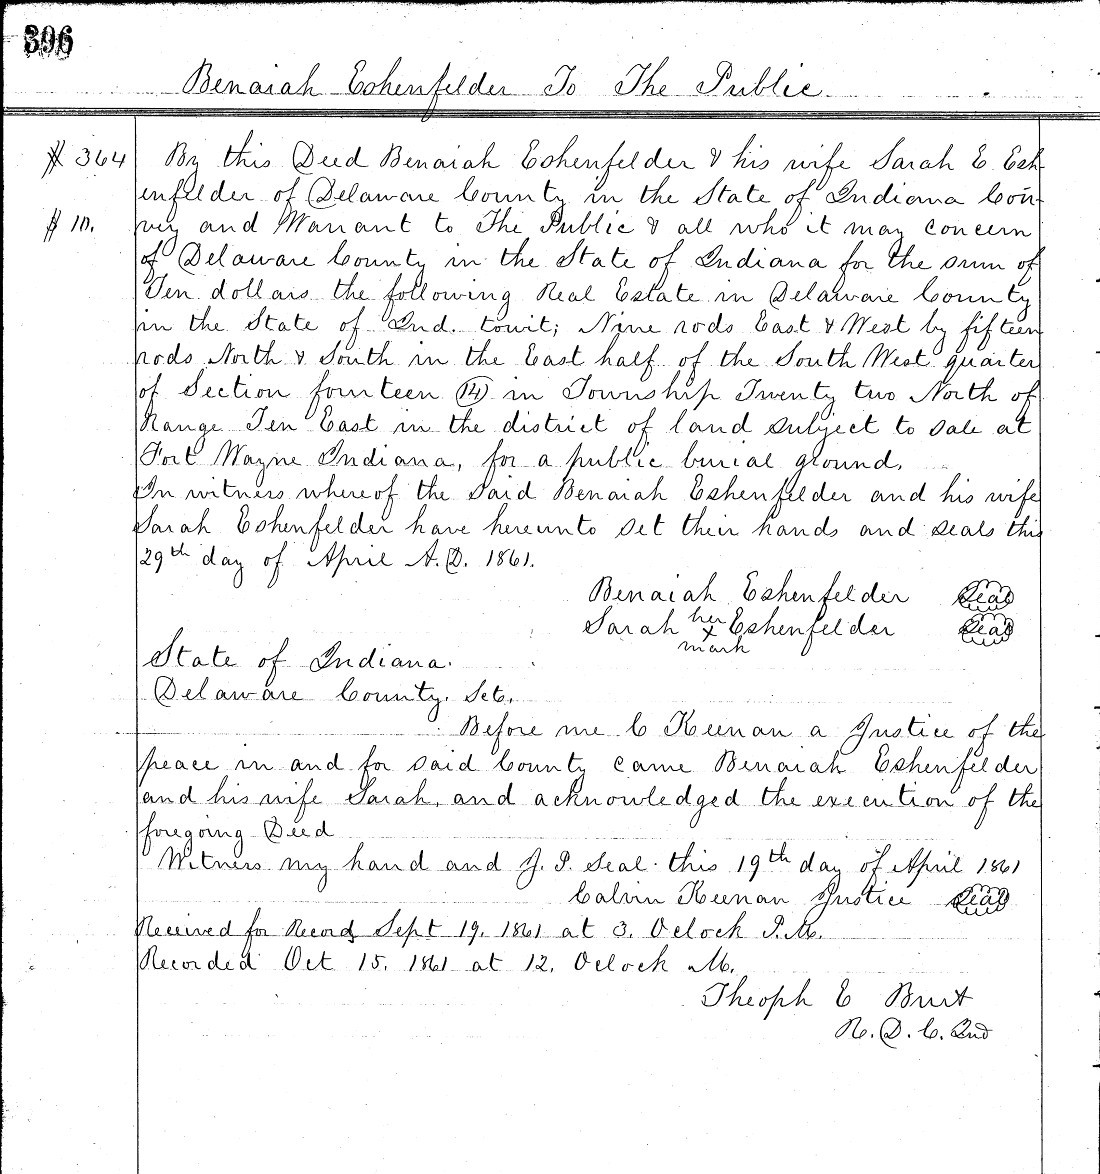 396
Benaiah Eshenfelder To The Public
# 364 By this Deed Benaiah Eshenfelder & his wife Sarah E Esh-
enfelder of Delaware County in the State of Indiana Con-
$ 10. vey and Warrant to The Public & all who it may concern
of Delaware County in the State of Indiana for the sum of
Ten dollars the following Real Estate in Delaware County
in the State of Ind. towit; Nine rods East & West by fifteen
rods North & South in the East half of the South West quarter
of Section fourteen (14) in Township Twenty two North of
Range Ten East in the district of land subject to sale at
Fort Wayne Indiana, for a public burial ground.
In witness whereof the said Benaiah Eshenfelder and his wife
Sarah Eshenfelder have hereunto set their hands and seals this
29th day of April A.D. 1861.
Benaiah Eshenfelder Seal
Sarah her x mark Eshenfelder Seal
State of Indiana.
Delaware County. Sct.
Before me C Keenan a Justice of the
peace in and for said County came Benaiah Eshenfelder
and his wife Sarah, and acknowledged the execution of the
foregoing Deed
Witness my hand and J. P. Seal this 19th day of April 1861
Calvin Keenan Justice Seal
Received for Record Sept 19. 1861 at 3. Oclock P.M.
Recorded Oct 15. 1861 at 12. Oclock M.
Theoph E Burt
R. D. C. Ind